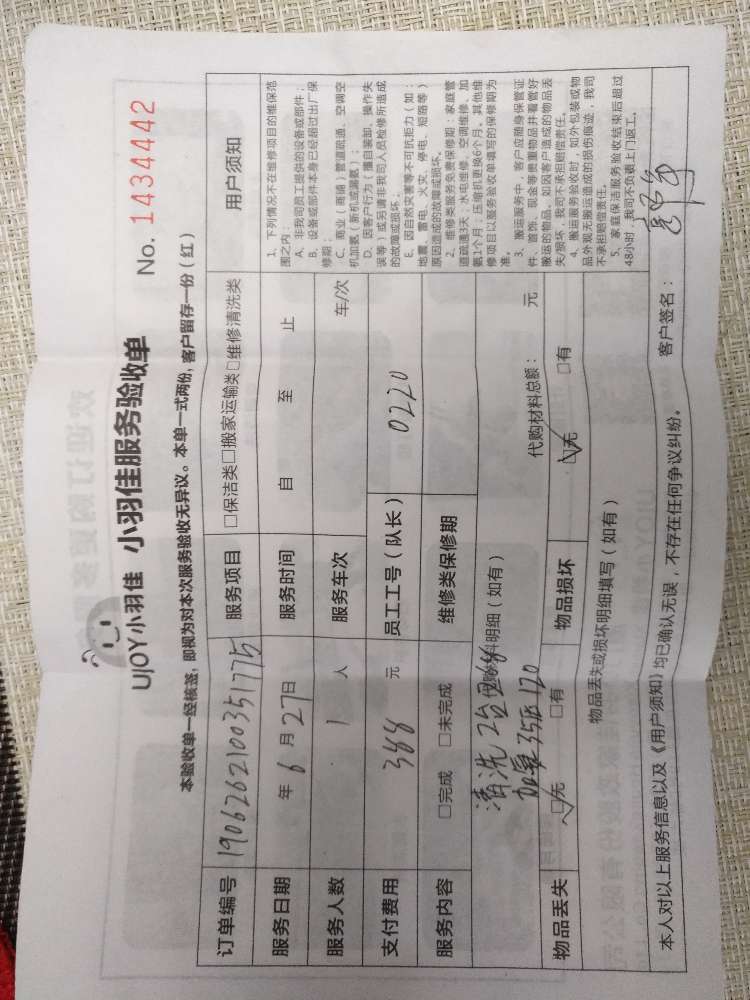 UJOY小羽佳 小羽佳服务验收单 No. 1434442
本验收单一经核签，即视为对本次服务验收无异议。本单一式两份，客户留存一份（红）
订单编号 190626210035 1775 服务项目 □保洁类□搬家运输类□维修清洗类
服务日期 年 6 月 27 日 服务时间 自 至 止
服务人数 1 人 服务车次 车/次
支付费用 388 元 员工工号（队长） 0220
服务内容 □完成 □未完成 维修类保修期
代购材料明细（如有） 代购材料总额： 元
清洗 2台
加氟 35压 120
物品丢失 ☑无 □有 物品损坏 ☑无 □有
物品丢失或损坏明细填写（如有）
本人对以上服务信息以及《用户须知》均已确认无误，不存在任何争议纠纷。 客户签名：
用户须知
1、下列情况不在维修项目的维保范
围之内：
A、非我司员工提供的设备或部件；
B、设备或部件本身已经超过出厂保
修期；
C、商业（商铺）管道疏通、空调空
机加氨（新机或漏氨）；
D、因客户行为（擅自装卸、操作失
误等）或另请非我司人员检修所造成
的故障或损坏；
E、因自然灾害等不可抗拒力（如：
地震、雷电、火灾、停电、短路等）
原因造成的故障或损坏。
2、维修类服务免费保修期：家庭管
道疏通3天；水电维修、空调维修、加
氨1个月；压缩机更换6个月；其他维
修项目以服务验收单填写的保修期为
准。
3、搬运服务中，客户应随身保管证
件、首饰、现金等贵重物品并看管好
搬运的物品，如因客户造成的物品丢
失/损坏，我司不承担赔偿责任。
4、搬运服务验收时，如外包装或物
品外观无搬运造成的损伤痕迹，我司
不承担赔偿责任。
5、家庭保洁服务验收结束后超过
48小时，我司不负责上门返工。